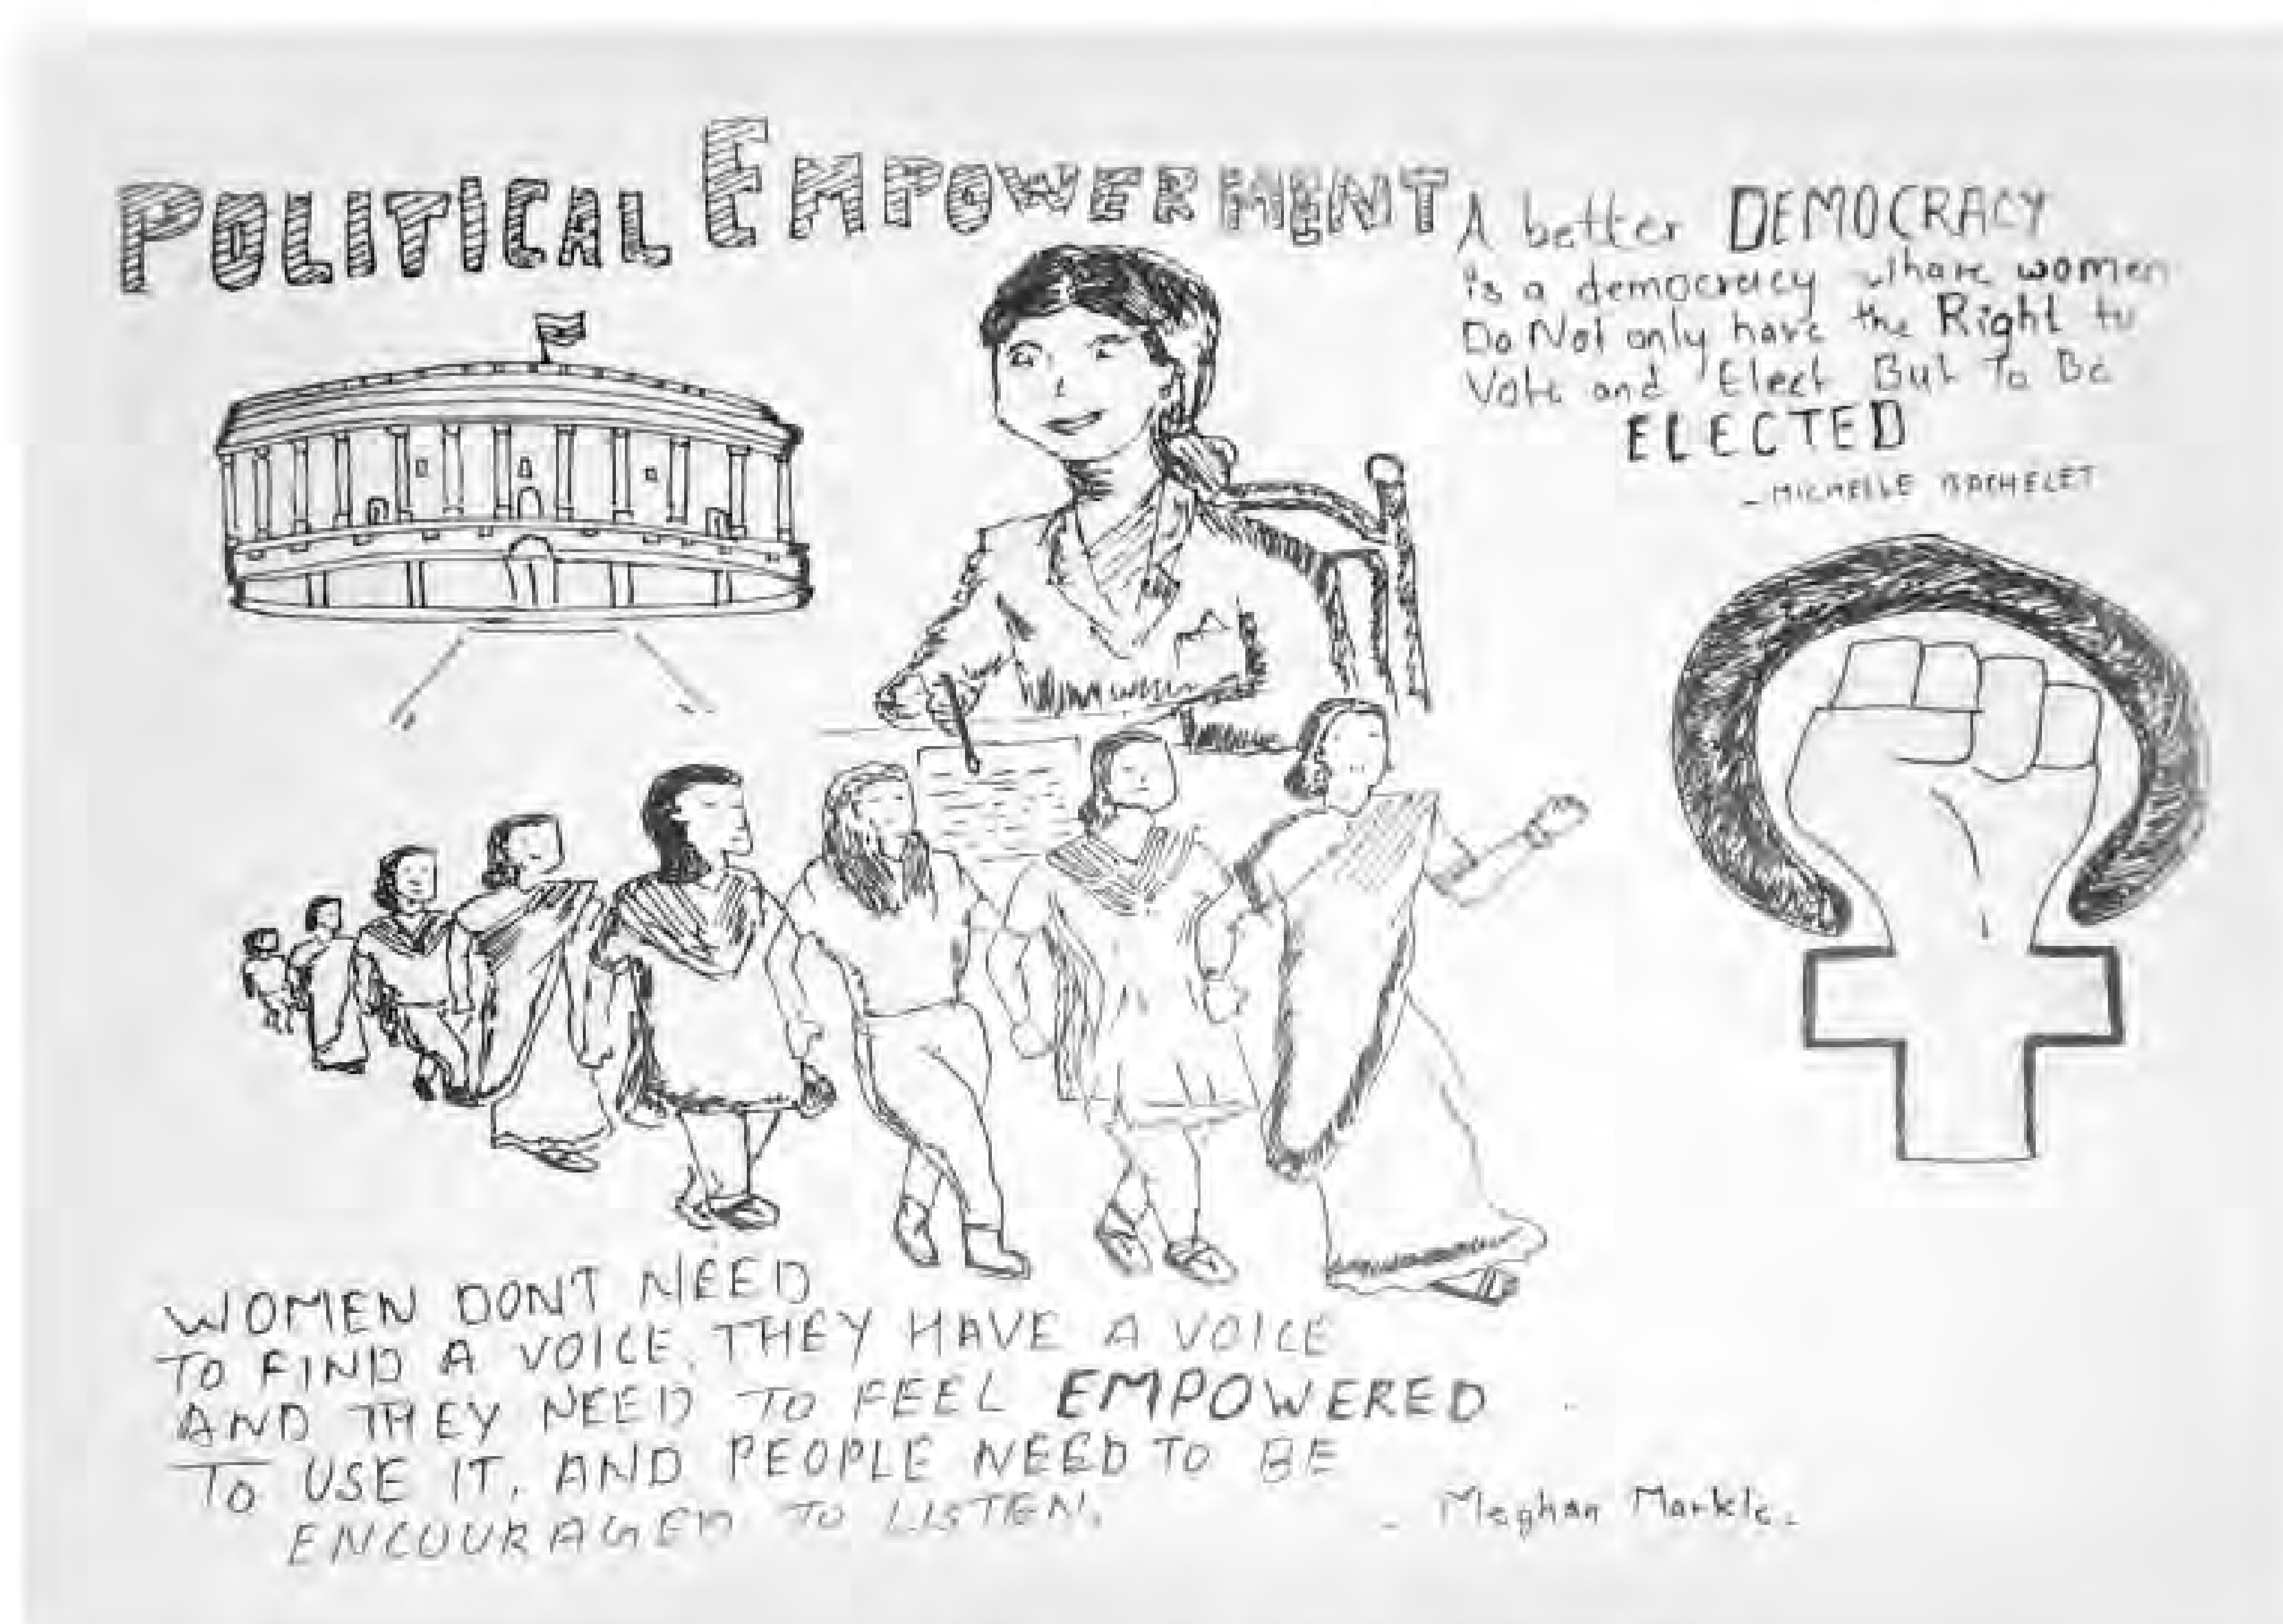 POLITICAL EMPOWERMENT
A better DEMOCRACY
is a democracy whare women
Do Not only have the Right to
Vote and Elect But To Be
ELECTED
- MICHELLE BACHELET
WOMEN DON'T NEED
TO FIND A VOICE, THEY HAVE A VOICE
AND THEY NEED TO FEEL EMPOWERED
TO USE IT, AND PEOPLE NEED TO BE
ENCOURAGED TO LISTEN.
- Meghan Markle.